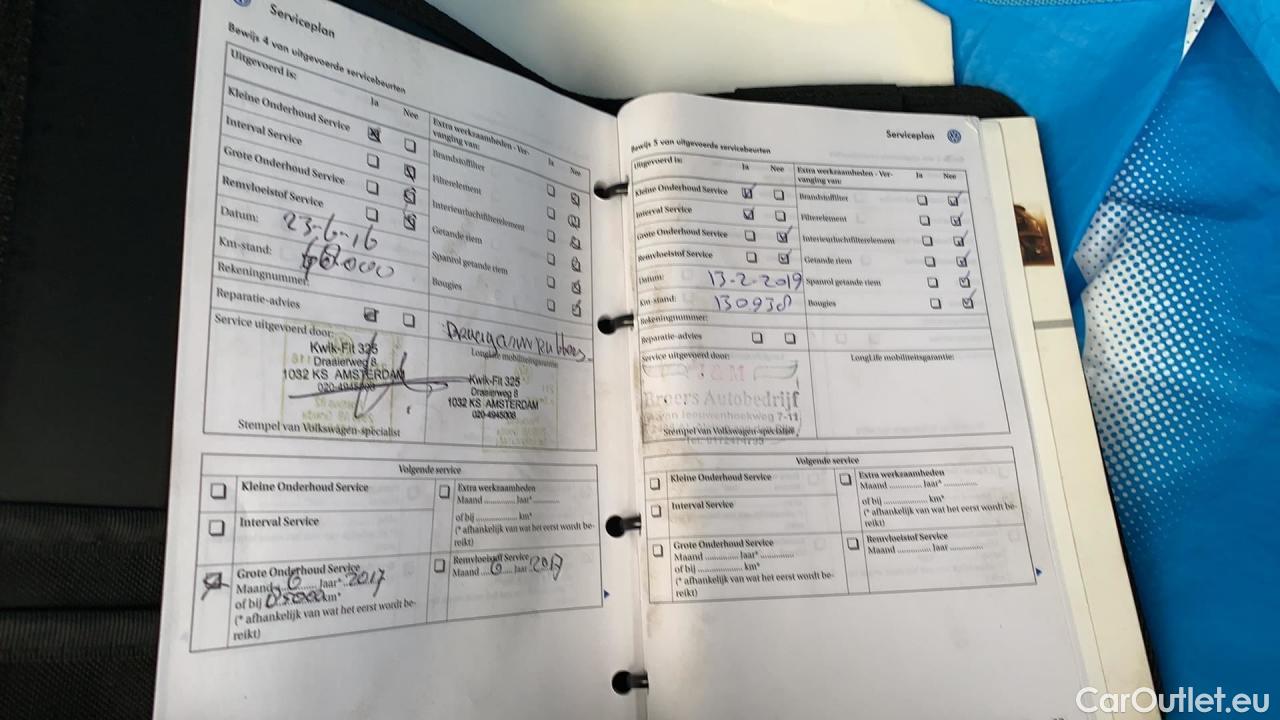 Serviceplan
Bewijs 4 van uitgevoerde servicebeurten
Uitgevoerd is:
Ja
Nee
Kleine Onderhoud Service
Interval Service
Grote Onderhoud Service
Remvloeistof Service
Datum:
23-6-16
Km-stand:
Rekeningnummer:
Reparatie-advies
Extra werkzaamheden - Ver-
vanging van:
Ja
Nee
Brandstoffilter
Filterelement
Interieurluchtfilterelement
Getande riem
Spanrol getande riem
Bougies
Service uitgevoerd door:
Kwik-Fit 325
Draaierweg 8
1032 KS AMSTERDAM
020-4945008
Stempel van Volkswagen-specialist
LongLife mobiliteitsgarantie:
Kwik-Fit 325
Draaierweg 8
1032 KS AMSTERDAM
020-4945008
Volgende service
Kleine Onderhoud Service
Interval Service
Grote Onderhoud Service
Maand 6 Jaar* 2017
of bij km*
(* afhankelijk van wat het eerst wordt be-
reikt)
Extra werkzaamheden
Maand .............. Jaar* ............
of bij .................. km*
(* afhankelijk van wat het eerst wordt be-
reikt)
Remvloeistof Service
Maand 6 Jaar 2017
Serviceplan
Bewijs 5 van uitgevoerde servicebeurten
Uitgevoerd is:
Ja
Nee
Kleine Onderhoud Service
Interval Service
Grote Onderhoud Service
Remvloeistof Service
Datum:
13-2-2019
Km-stand:
130938
Rekeningnummer:
Reparatie-advies
Extra werkzaamheden - Ver-
vanging van:
Ja
Nee
Brandstoffilter
Filterelement
Interieurluchtfilterelement
Getande riem
Spanrol getande riem
Bougies
Service uitgevoerd door:
Broers Autobedrijf
van Leeuwenhoekweg 7-11
Stempel van Volkswagen-specialist
LongLife mobiliteitsgarantie:
Volgende service
Kleine Onderhoud Service
Interval Service
Grote Onderhoud Service
Maand .............. Jaar* ..............
of bij .................. km*
(* afhankelijk van wat het eerst wordt be-
reikt)
Extra werkzaamheden
Maand .............. Jaar* ..............
of bij .................. km*
(* afhankelijk van wat het eerst wordt be-
reikt)
Remvloeistof Service
Maand .............. Jaar ..............
CarOutlet.eu